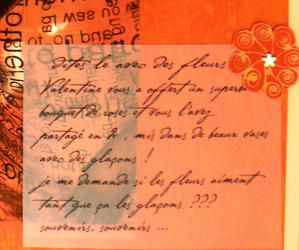 Dites le avec des fleurs
Valentine vous a offert un superbe
bouquet de roses et vous l'avez
partagé en 2, mis dans de beaux vases
avec des glaçons !
je me demande si les fleurs aiment
tant que ça les glaçons ???
souvenirs, souvenirs ...